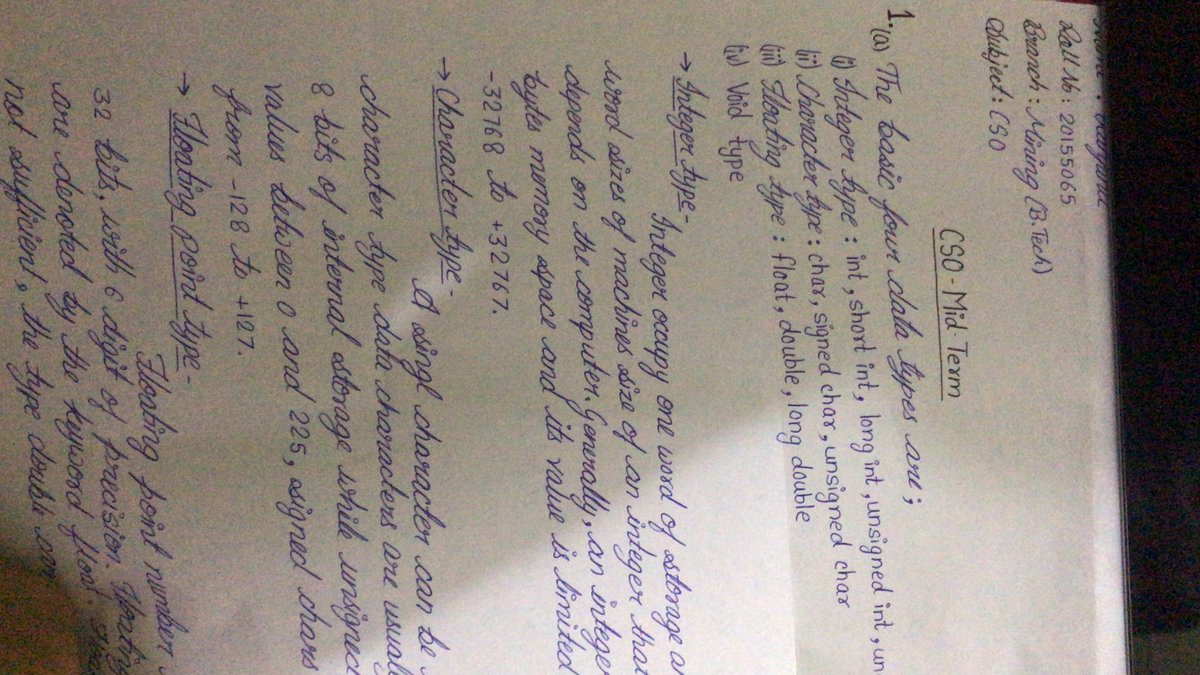 Roll No: 20155065
Branch: Mining (B.Tech)
Subject: CSO
CSO-Mid-Term
1.(a) The basic four data types are;
(i) Integer type: int, short int, long int, unsigned int, un
(ii) Character type: char, signed char, unsigned char
(iii) Floating type: float, double, long double
(iv) Void type
→ Integer type- Integer occupy one word of storage
word sizes of machines size of an integer that
depends on the computer. Generally, an integer
bytes memory space and its value is limited
-32768 to +32767.
→ Character type- A singl character can be
character type data characters are usual
8 bits of internal storage while unsigned
values between 0 and 225, signed chars
from -128 to +127.
→ Floating point type- Floating point number
32 bits, with 6 digit of pracision. Floating
are denoted by the keyword float.
not sufficient, the type double